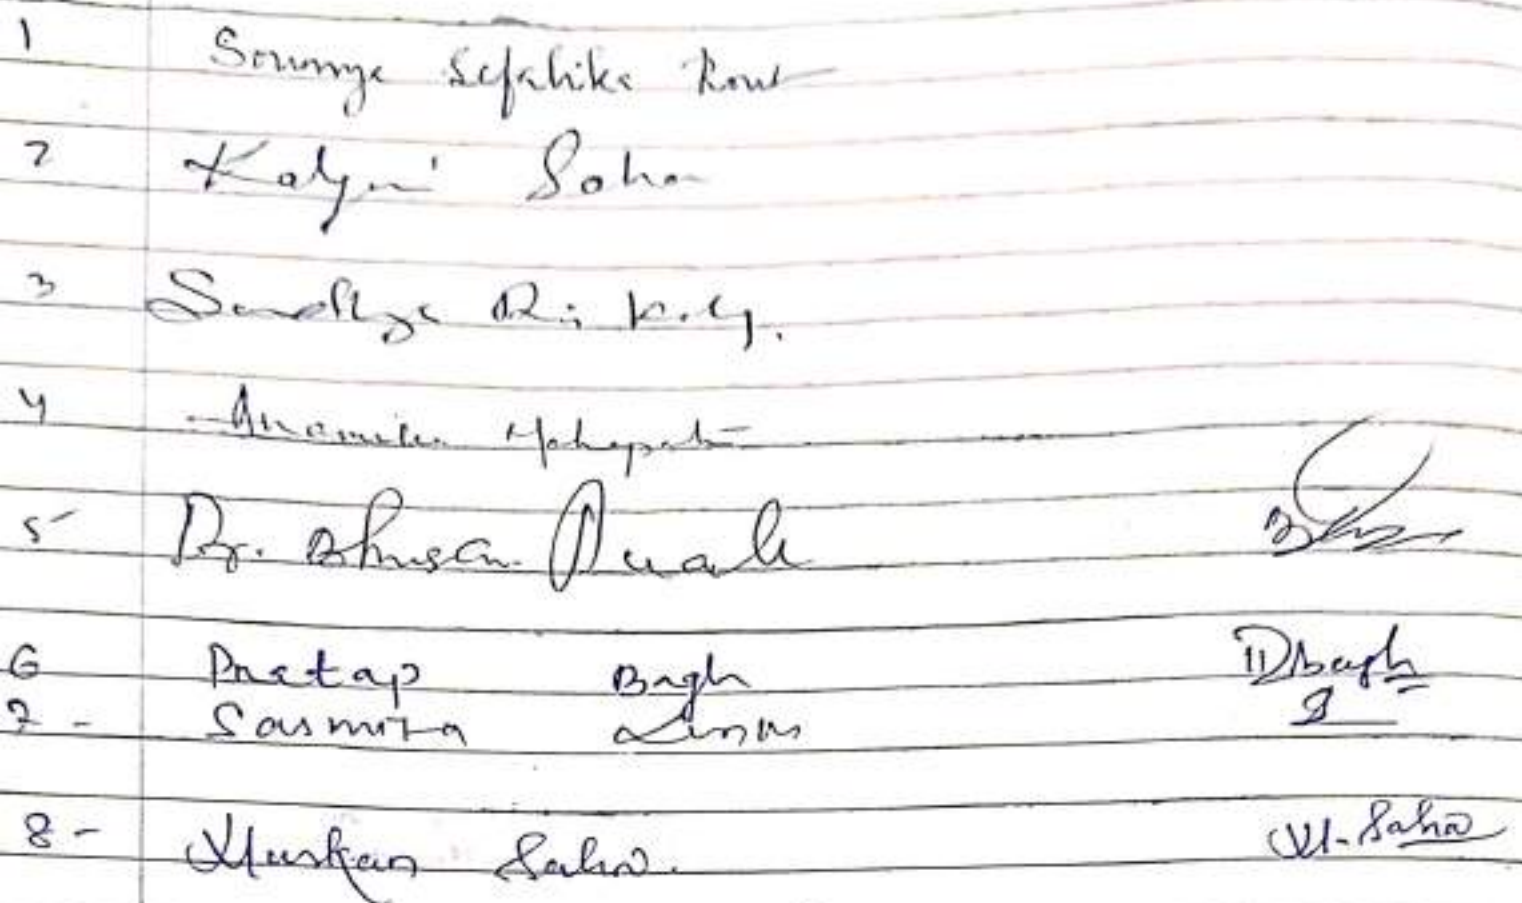 1 Soumya Sefalika Rout
2 Kalyani Saho
3 Sandhya
4 Anamika Mohapatra
5 Dr. Bhusan
6 Pratap Bagh DBagh
7 - Sasmita
8 - Muskan Saho. M. Saho